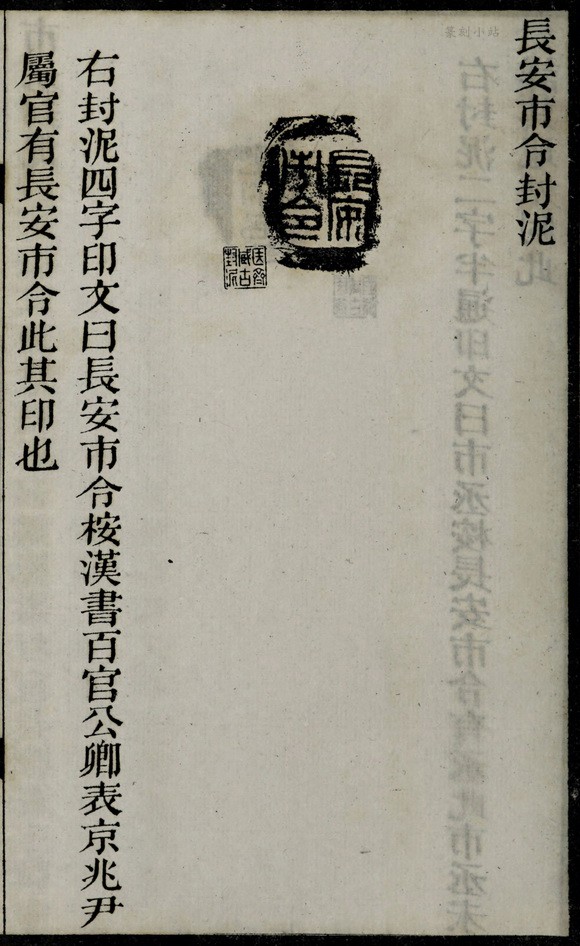 長安市令封泥
長安市令
右封泥四字印文曰長安市令桉漢書百官公卿表京兆尹
屬官有長安市令此其印也
篆刻小站